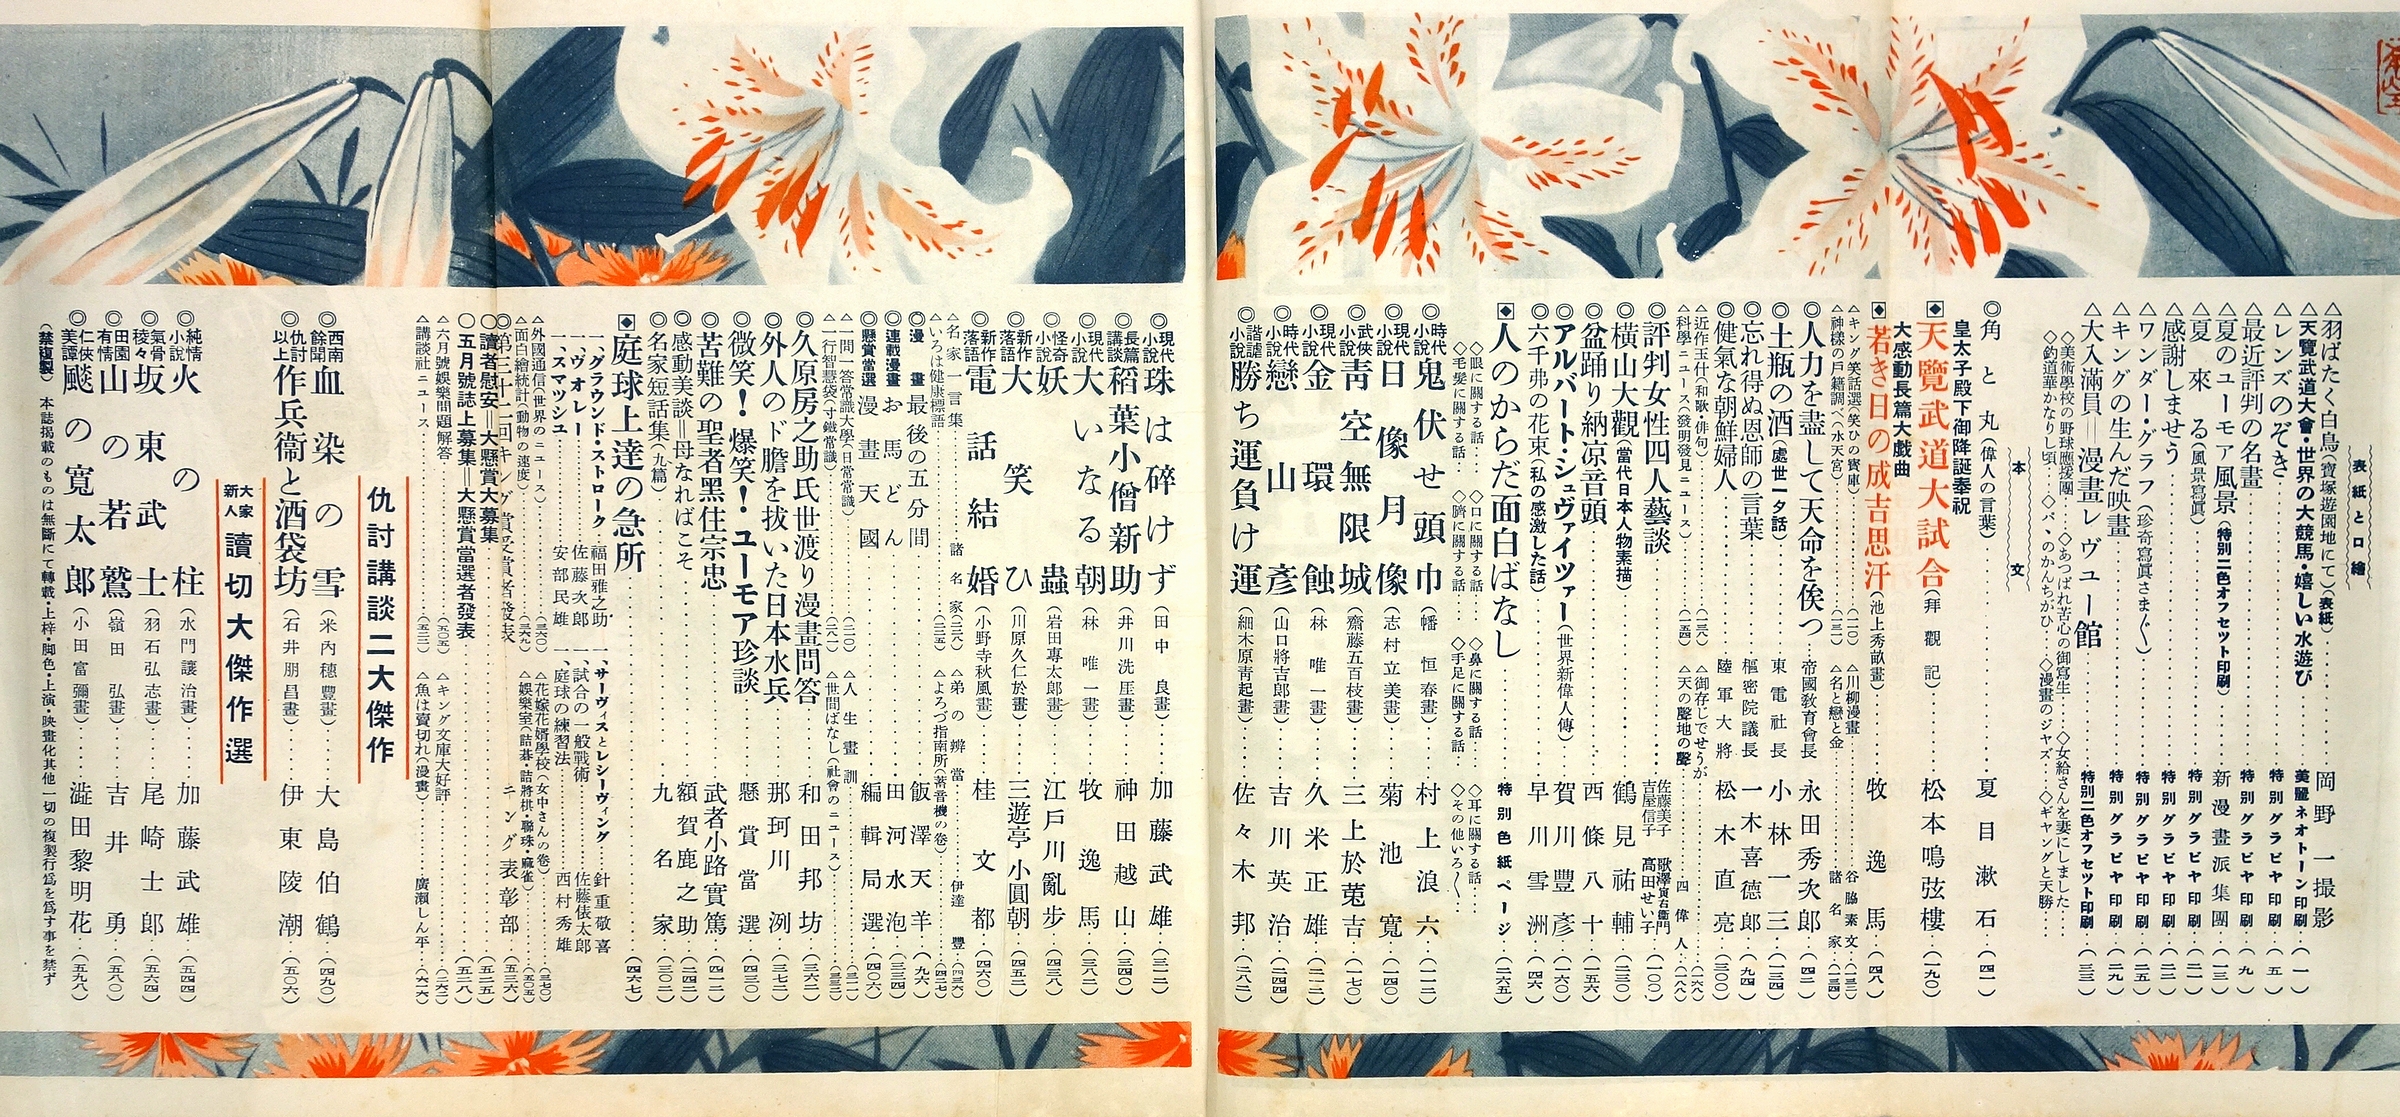 表紙と口繪
△羽ばたく白鳥(寶塚遊園地にて)(表紙)……岡野一撮影
天覽武道大會・世界の大競馬・嬉しい水遊び……美麗ネオトーン印刷…(一)
△レンズのぞき……特別グラビヤ印刷…(五)
△最近評判の名畫……特別グラビヤ印刷…(九)
△夏のユーモア風景(特別二色オフセツト印刷)……新漫畫派集團…(一三)
△夏來る(風景寫眞)……特別グラビヤ印刷…(二一)
△感謝しませう……特別グラビヤ印刷…(二二)
△ワンダー・グラフ(珍奇寫眞さま〴〵)……特別グラビヤ印刷…(二五)
△キングの生んだ映畫……特別グラビヤ印刷…(二九)
△大入滿員＝漫畫レヴュー館……特別二色オフセツト印刷…(三三)
◇美術學校の野球應援團……◇あつぱれ苦心の御寫生……◇女給さんを妻にしました……
◇釣道華かなりし頃……◇パヽのかんちがひ……◇漫畫のジヤズ……◇ギヤングと天勝……
本文
◎角と丸(偉人の言葉)……夏目漱石…(四一)
皇太子殿下御降誕奉祝
◆天覽武道大試合(拜觀記)……松本鳴弦樓…(一九〇)
大感動長篇大戲曲
◆若き日の成吉思汗(池上秀畝畫)……牧逸馬…(四八)
△キング笑話選(笑ひの寶庫)……(一一〇)
△川柳漫畫……谷脇素文…(一三二)
△神樣の戶籍調べ(水天宮)……(一三一)
△名と戀と金……諸名家…(一三四)
◎人力を盡して天命を俟つ…帝國敎育會長 永田秀次郎…(四二)
◎土瓶の酒(處世一夕話)……東電社長 小林一三…(一三四)
◎忘れ得ぬ恩師の言葉……樞密院議長 一木喜德郎…(九四)
◎健氣な朝鮮婦人……陸軍大將 松木直亮…(三〇〇)
△近作玉什(和歌・俳句)……(一三八)
△御存じでせうが……(一六八)
△科學ニュース(發明發見ニュース)……(一五四)
△天の聲地の聲……四偉人…(一八八)
◎評判女性四人藝談……佐藤美子 歌澤寅右衞門 吉屋信子 高田せい子…(一〇〇)
◎橫山大觀(當代日本人物素描)……鶴見祐輔…(二三〇)
◎盆踊り納凉音頭……西條八十…(一五六)
◎アルバート・シュヴァイツァー(世界新偉人傳)……賀川豐彥…(一六〇)
◎六千弗の花束(私の感激した話)……早川雪洲…(二四六)
◆人のからだ面白ばなし……特別色紙ページ…(二六五)
◇眼に關する話……◇口に關する話……◇鼻に關する話……◇耳に關する話……
◇毛髮に關する話……◇臍に關する話……◇手足に關する話……◇その他いろ〳〵……
◎時代小說 鬼伏せ頭巾(幡恒春畫)……村上浪六…(一一二)
◎現代小說 日像月像(志村立美畫)……菊池寬…(一四〇)
◎武俠小說 靑空無限城(齋藤五百枝畫)……三上於菟吉…(一七〇)
◎現代小說 金環蝕(林唯一畫)……久米正雄…(二一二)
◎時代小說 戀山彥(山口將吉郎畫)……吉川英治…(二四四)
◎諧謔小說 勝ち運負け運(細木原靑起畫)……佐々木邦…(二八二)
◎現代小說 珠は碎けず(田中良畫)……加藤武雄…(三一二)
◎長篇講談 稻葉小僧新助(井川洗厓畫)……神田越山…(三四〇)
◎現代小說 大いなる朝(林唯一畫)……牧逸馬…(三八二)
◎怪奇小說 妖蟲(岩田專太郎畫)……江戶川亂步…(四三八)
◎新作落語 大笑ひ(川原久仁於畫)……三遊亭小圓朝…(四五二)
◎新作落語 電話結婚(小野寺秋風畫)……桂文都…(四六〇)
△名家一言集……諸名家(二三八)
△弟の辨當……伊達豐…(四三六)
△いろは健康標語……(二二五)
△よろづ指南所(蓄音機の卷)……(四三七)
◎漫畫 最後の五分間……飯澤天羊…(九六)
◎連載漫畫 お馬どん……田河水泡…(三三四)
◎懸賞當選 漫畫天國……編輯局選…(四〇六)
△一問一答常識大學(日常常識)……(二一〇)
△人生畫訓……(三一一)
△一行智慧袋(寸鐵常識)……(二八一)
△世間ばなし(社會のニュース)……(三三二)
◎久原房之助氏世渡り漫畫問答……和田邦坊…(三六二)
◎外人のド膽を拔いた日本水兵……那珂川洌…(三七二)
◎微笑！爆笑！ユーモア珍談……懸賞當選…(四三〇)
◎苦難の聖者黑住宗忠……武者小路實篤…(四一二)
◎感動美談＝母なればこそ……額賀鹿之助…(二四二)
◎名家短話集(九篇)……九名家…(三〇二)
◆庭球上達の急所……(四六七)
一、グラウンド・ストローク…福田雅之助
一、サーヴィスとレシーヴィング……針重敬喜
一、ヴオレー……佐藤次郎
一、試合の一般戰術……佐藤俵太郎
一、スマツシユ……安部民雄
一、庭球の練習法……西村秀雄
△外國通信(世界のニュース)……(三六〇)
△花嫁花婿學校(女中さんの卷)……(三七〇)
△面白繪統計(動物の速度)……(三六九)
△娛樂室(詰碁・詰將棋・聯珠・麻雀)…(五〇五)
◎第三十二回キング賞受賞者發表……キング表彰部…(五三六)
◎讀者慰安＝大懸賞大募集……(五二五)
〇五月號誌上募集＝大懸賞當選者發表……(五二八)
△六月號娛樂問題解答……(五〇五)
△キング文庫大好評……(六二二)
△講談社ニュース……(五二三)
△魚は賣切れ(漫畫)……廣瀨しん平…(六二六)
仇討講談二大傑作
◎西南餘聞 血染の雪(米內穗豐畫)……大島伯鶴…(四九〇)
◎仇討以上 作兵衞と酒袋坊(石井朋昌畫)……伊東陵潮…(五〇六)
大家新人 讀切大傑作選
◎純情小說 火の柱(水門讓治畫)……加藤武雄…(五四四)
◎氣骨稜々 坂東武士(羽石弘志畫)……尾崎士郎…(五六四)
◎田園有情 山の若鷲(嶺田弘畫)……吉井勇…(五八〇)
◎仁俠美譚 颷の寬太郎(小田富彌畫)……澁田黎明花…(五九八)
(禁複製) 本誌揭載のものは無斷にて轉載・上梓・脚色・上演・映畫化其他一切の複製行爲を爲す事を禁ず